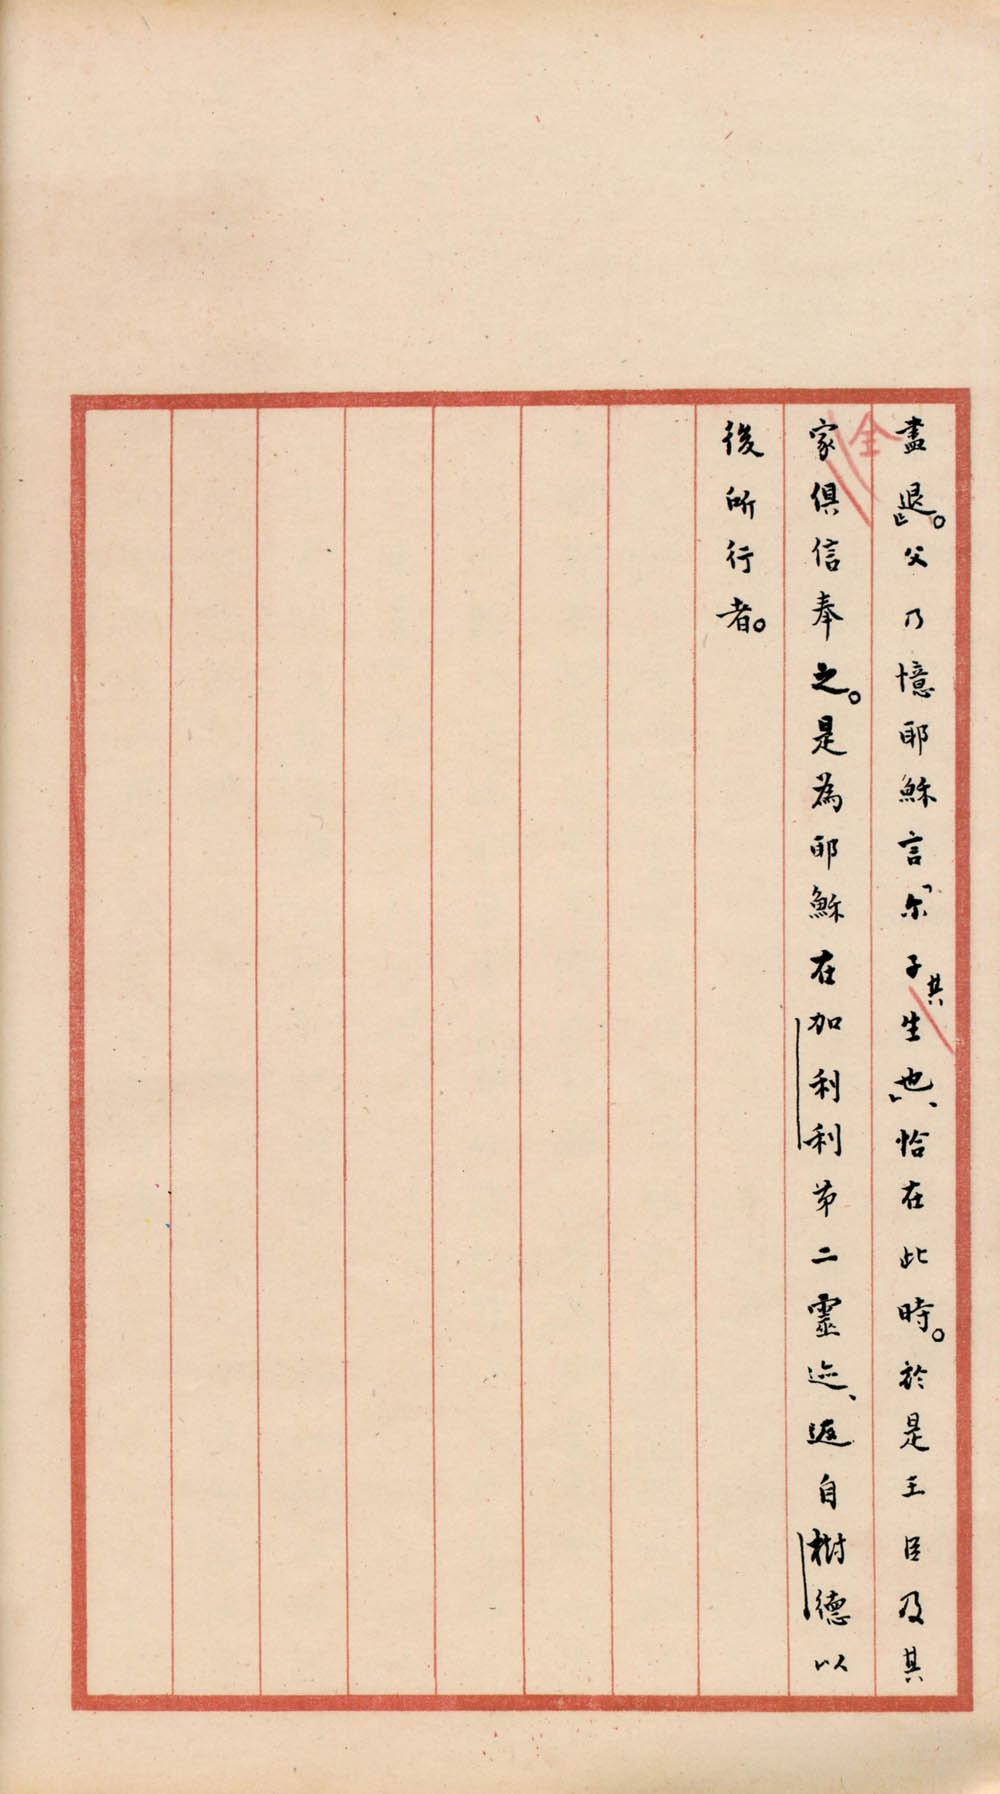 盡退』。父乃憶耶穌言『尔子其生也』、恰在此時。於是王臣及其
全
家俱信奉之。是為耶穌在加利利第二靈迹、返自樹德以
後所行者。